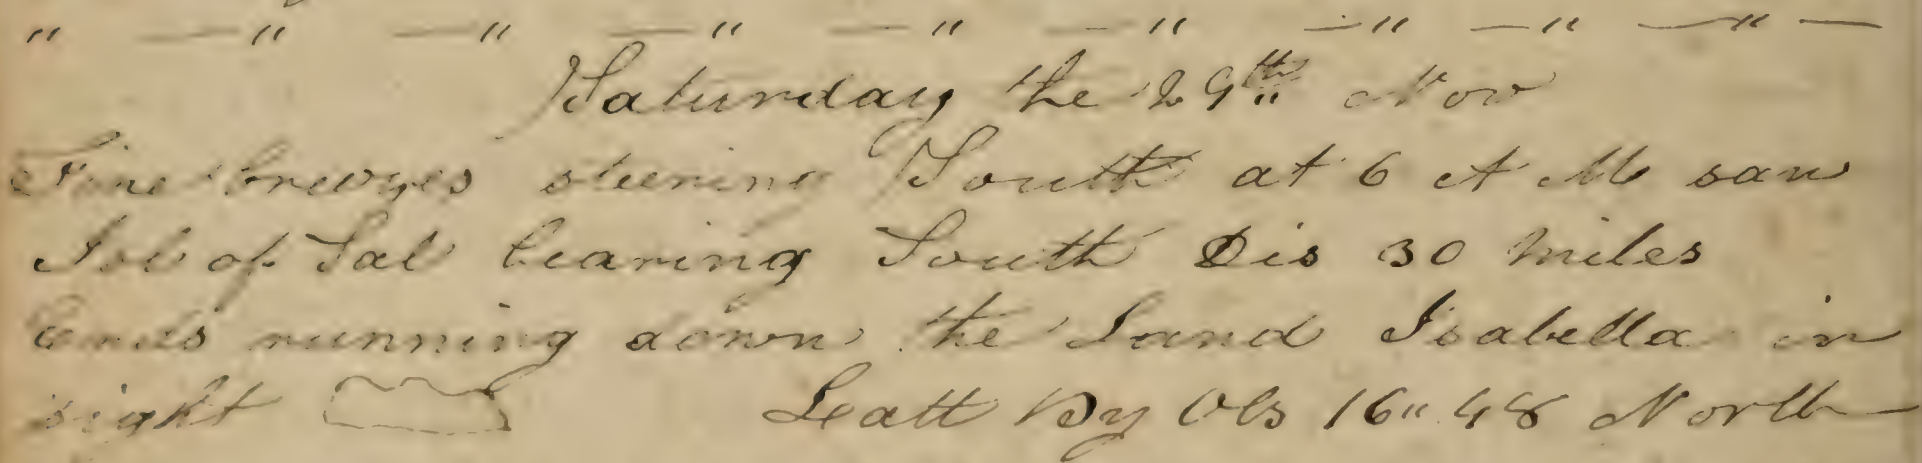 " — " — " — " — " — " — " — " — " —
Saturday the 29th Nov
Fine breezes steering South at 6 A M saw
Isle of Sal bearing South Dis 30 Miles
Ends running down the Land Isabella in
sight Latt By Obs 16" 48 North